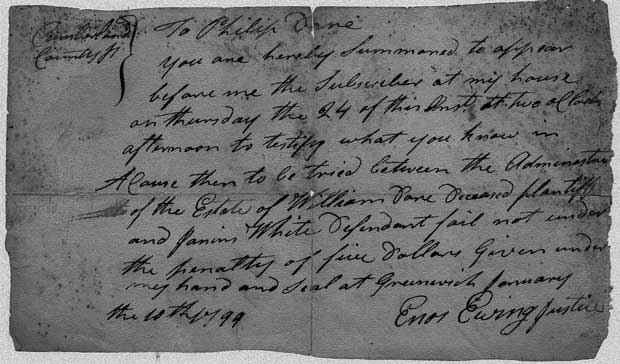 Cumberland
County ss
To Philip Dare
you are hereby Summoned to appear
before me the Subscriber at my house
on thursday the 24 of this Inst at two oClock
afternoon to testify what you know in
A Cause then to be tried between the Administra
of the Estate of William Dare Deceased plantiffs
and White Defendant fail not under
the penalty of five Dollars Given under
my hand and Seal at Greenwich January
the 10th 1799
Enos Ewing Justice